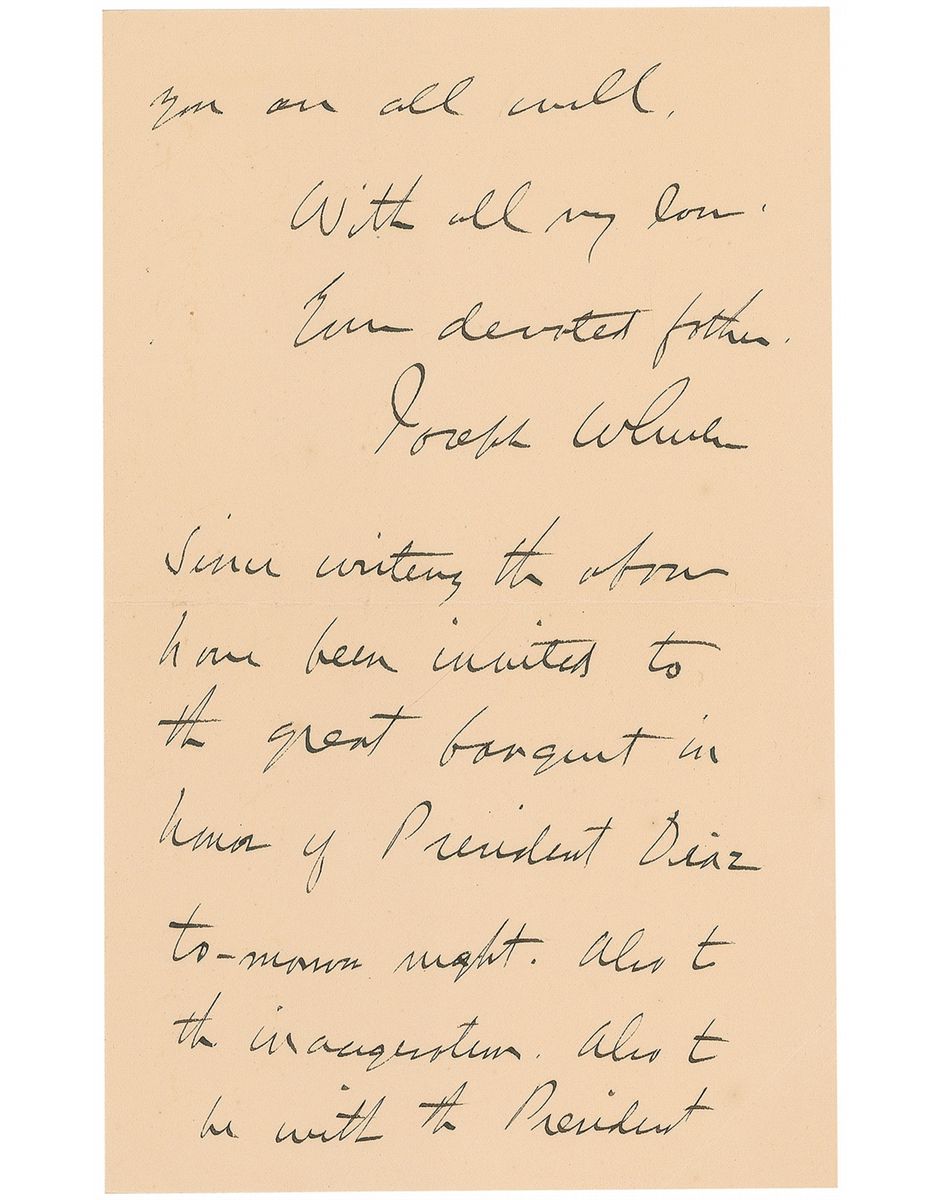 you are all well.
With all my love.
Your devoted father.
Joseph Wheeler
Since writing the above
have been invited to
the great banquet in
honor of President Diaz
to-morrow night. Also to
the inauguration. Also to
be with the President